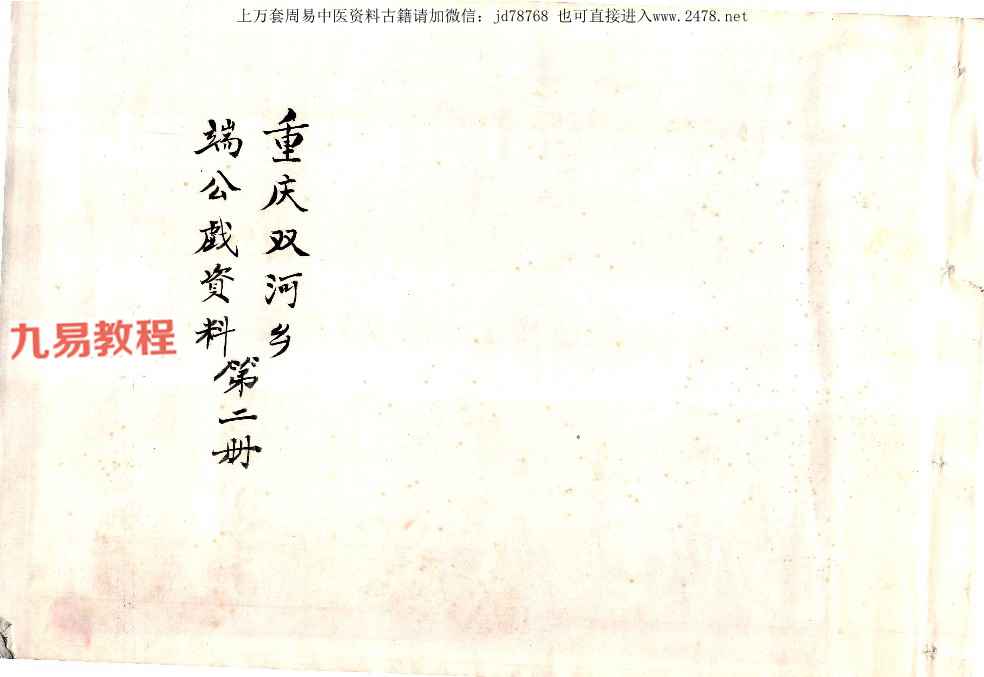 上万套周易中医资料古籍请加微信: jd78768 也可直接进入www.2478.net
重庆双河乡
端公戏資料第二册
九易教程